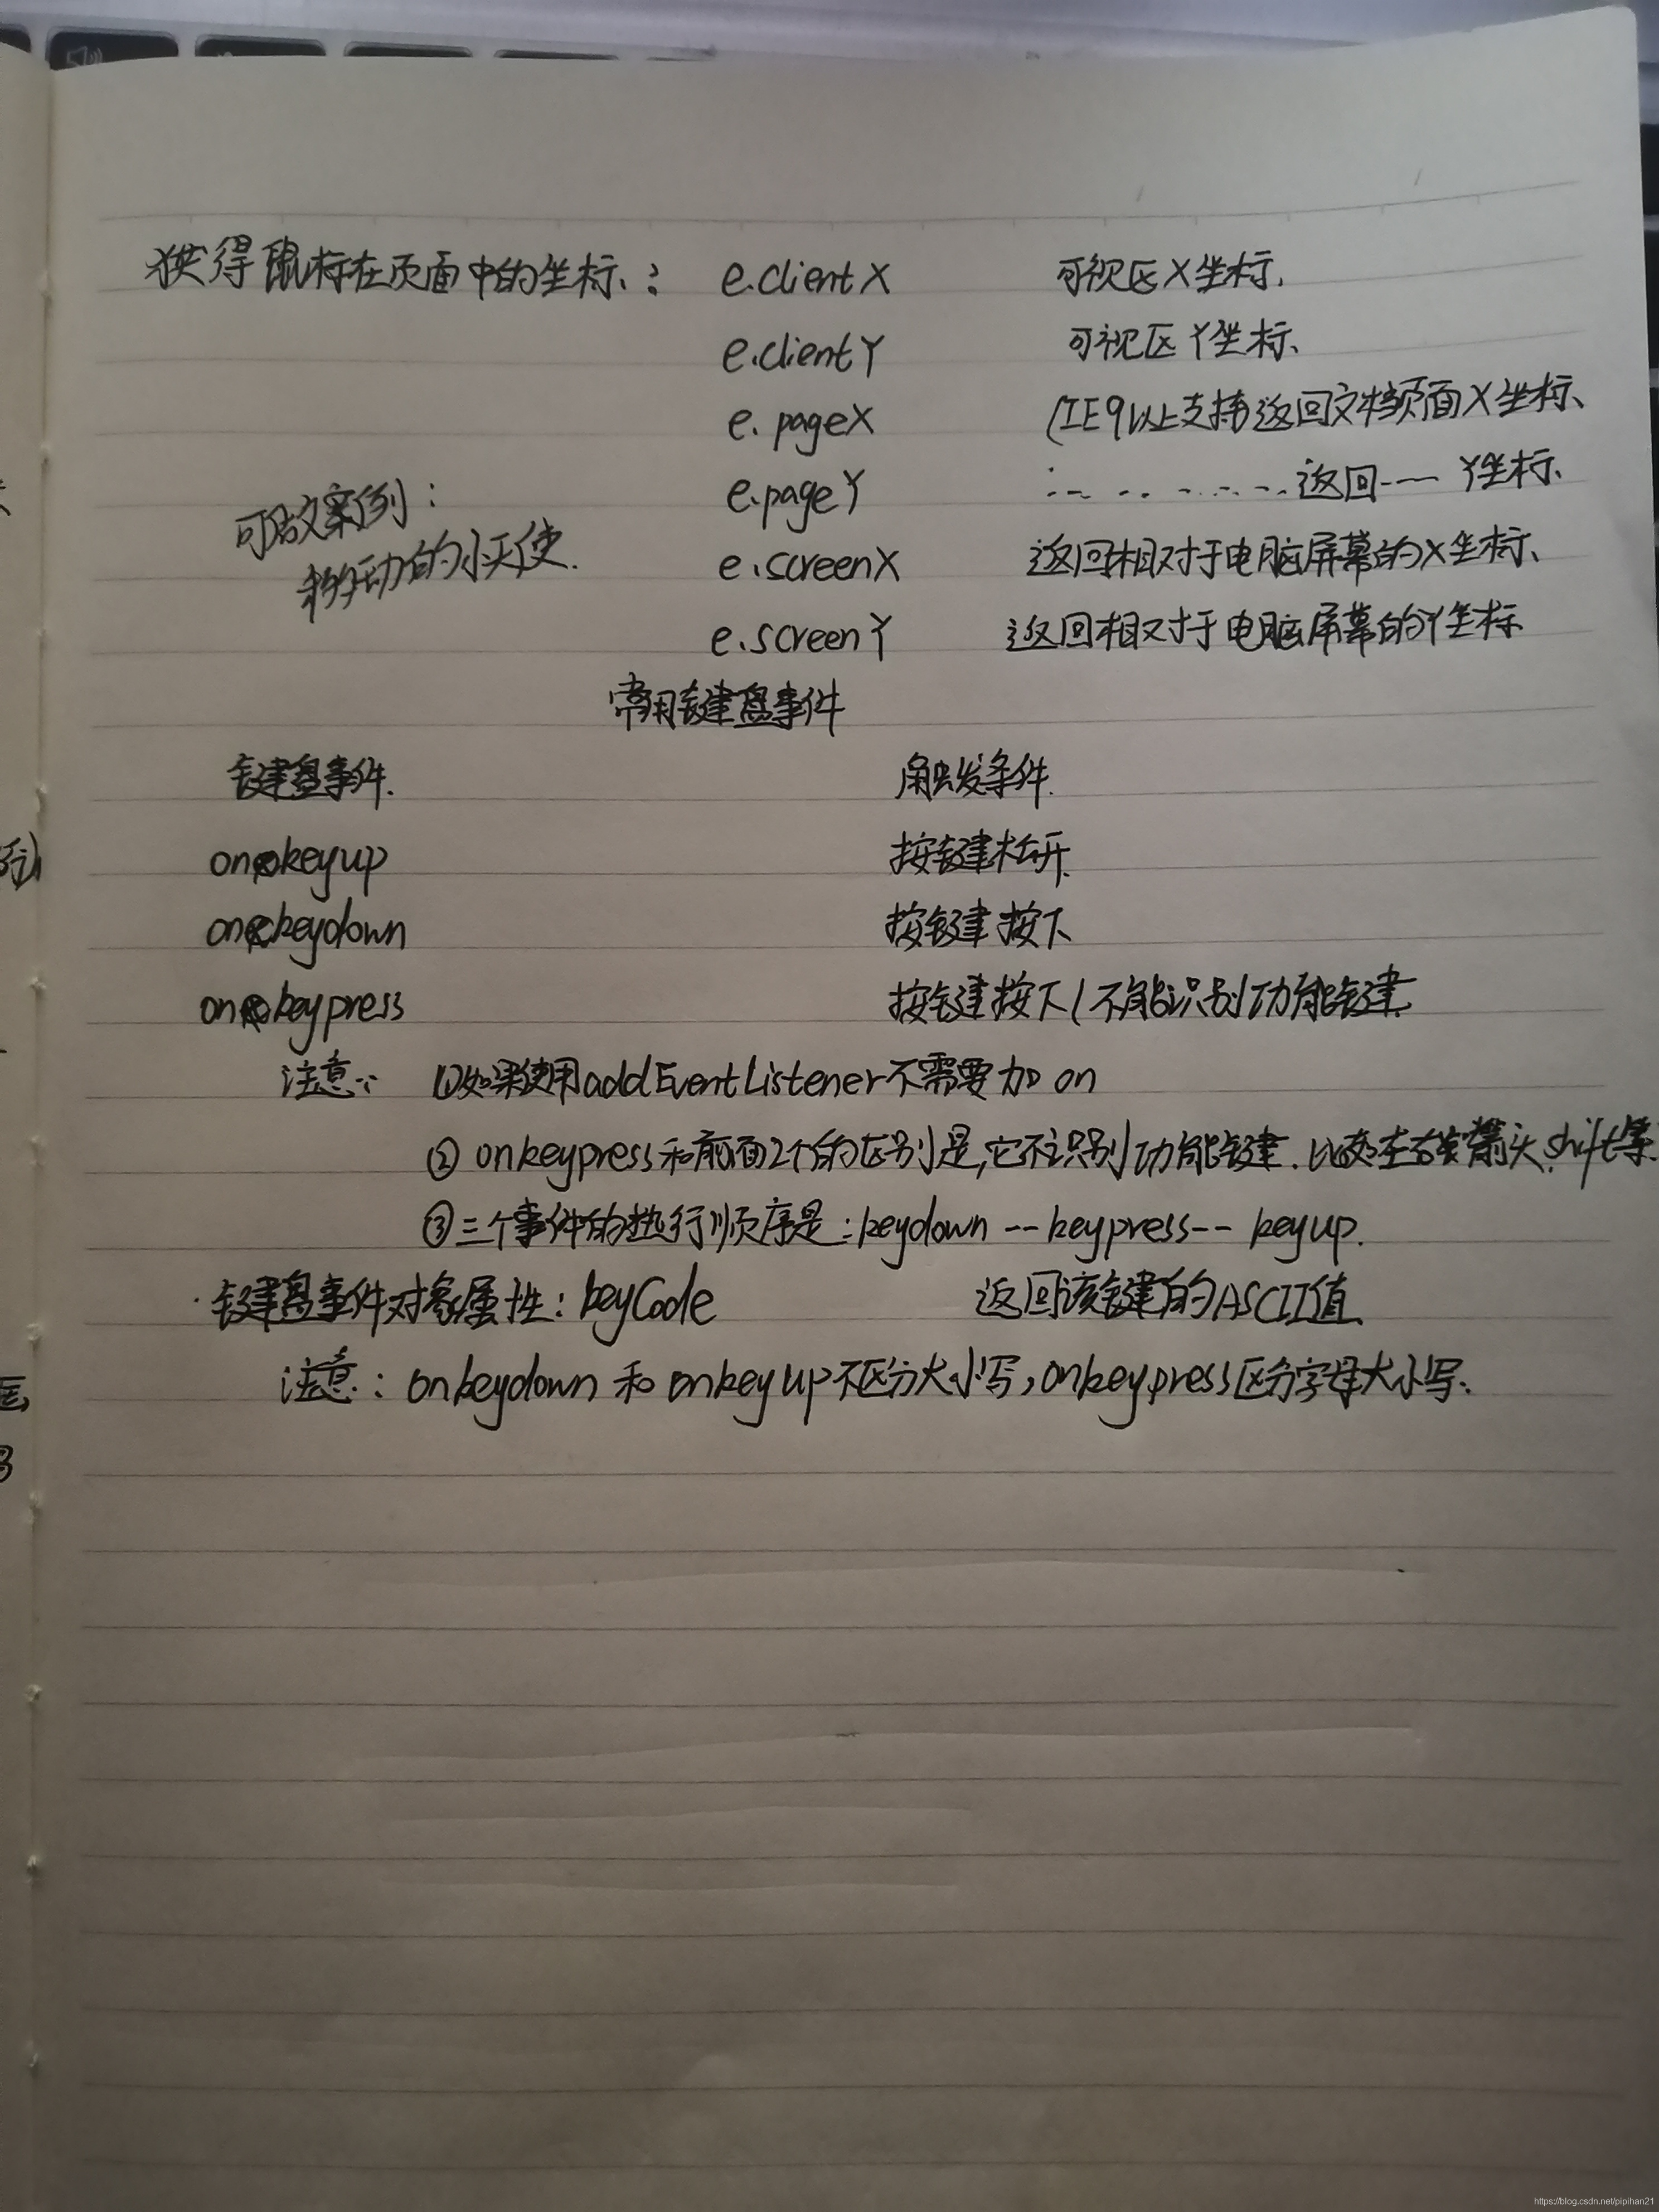 获得鼠标在页面中的坐标： e.clientX 可视区X坐标.
e.clientY 可视区Y坐标、
e.pageX (IE9以上支持返回文档页面X坐标、
e.pageY 返回---- Y坐标、
可做案例：
移动的小天使.
e.screenX 返回相对于电脑屏幕的X坐标、
e.screenY 返回相对于电脑屏幕的Y坐标
常用键盘事件
键盘事件. 触发条件.
onkeyup 按键松开.
onkeydown 按键按下
onkeypress 按键按下(不能识别功能键.
注意： ①如果使用addEventListener不需要加 on
② onkeypress和前面2个的区别是,它不识别功能键.比如左右箭头.shift等
③三个事件的执行顺序是：keydown -- keypress-- keyup.
键盘事件对象属性：keyCode 返回该键的ASCII值.
注意：onkeydown 和 onkeyup不区分大小写,onkeypress区分字母大小写.
https://blog.csdn.net/pipihan21